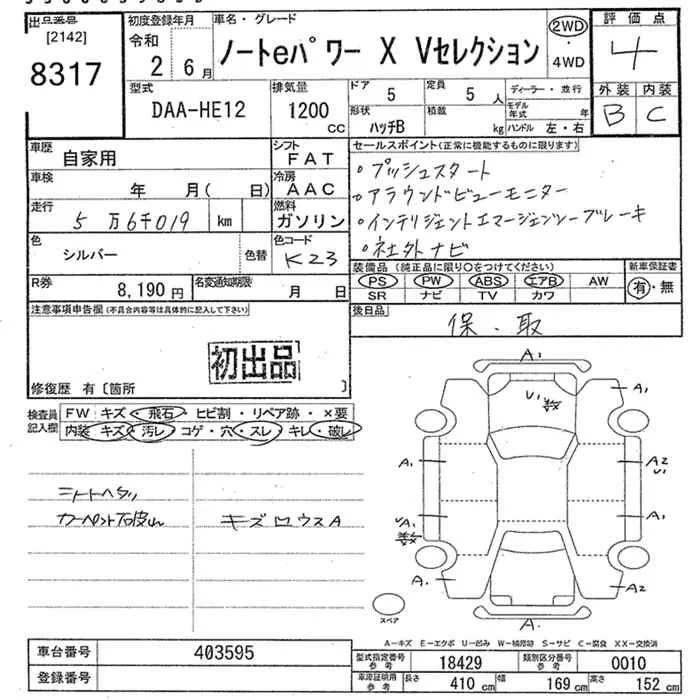 出品番号
[2142]
8317
初度登録年月
令和
2 6月
車名・グレード
ノートeパワー X Vセレクション
2WD
・
4WD
評価点
4
外装 内装
B C
型式
DAA-HE12
排気量
1200
cc
ドア
5
定員
5 人
ディーラー・並行
形状
ハッチB
積載
kg
モデル
年式 年
ハンドル 左・右
車歴
自家用
シフト
FAT
セールスポイント(正常に機能するものに限ります)
車検
年 月( 日)
冷房
AAC
・プッシュスタート
・アラウンドビューモニター
・インテリジェントエマージェンシーブレーキ
・社外ナビ
走行
5万6千019 km
燃料
ガソリン
色
シルバー
色替
色コード
K23
装備品 (純正品に限り○をつけてください)
PS PW ABS エアB AW
SR ナビ TV カワ
新車保証書
有・無
R券
8,190円
名変通知期限
月 日
後日品
保・取
注意事項申告欄(不具合内容等は具体的に記入して下さい)
初出品
修復歴 有〔箇所 〕
検査員
記入欄
FW キズ・飛石・ヒビ割・リペア跡・×要
内装 キズ・汚レ・コゲ・穴・スレ・キレ・破レ
シートヘタリ
キズロウスA
A1
U1
A1
A1
A2
U1
A1
A1
A2
A
スペア
A-キズ E-エクボ U-凹み W-補修跡 S-サビ C-腐食 XX-交換済
車台番号
403595
登録番号
型式指定番号
参考
18429
類別区分番号
参考
0010
車庫証明用
参考
長さ 410 cm 幅 169 cm 高さ 152 cm